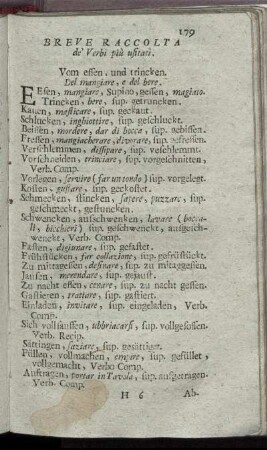 179
BREVE RACCOLTA
de' Verbi più usitati.
Vom essen, und trincken.
Del mangiare, e del bere.
Essen, mangiare, Supino, gessen, magiato.
Trincken, bere, sup. getruncken.
Kauen, masticare, sup. gekaut.
Schlucken, inghiottire, sup. geschluckt.
Beissen, mordere, dar di bocca, sup. gebissen.
Fressen, mangiacherare, divorare, sup. gefressen.
Verschlemmen, dissipare, sup. veschlemmt.
Vorschneiden, trinciare, sup. vorgeschnitten,
Verb. Comp.
Vorlegen, servire (far un tondo) sup. vorgelegt.
Kosten, gustare, sup. gekostet.
Schmecken, stincken, sapere, puzzare, sup.
geschmeckt, gestuncken.
Schwencken, ausschwencken, lavare (bocca-
li, bicchieri) sup. geschwenckt, ausgesch-
wenckt, Verb. Comp.
Fasten, digiunare, sup. gefastet.
Frühstücken, far collazione, sup. gefrüstückt.
Zu mittagessen, desinare, sup. zu mitaggessen.
Jausen, merendare, sup. gejaust.
Zu nacht essen, cenare, sup. zu nacht gessen.
Gastieren, trattare, sup. gastiert.
Einladen, invitare, sup. eingeladen, Verb.
Comp.
Sich vollsaussen, ubbriacarsi, sup. vollgesossen.
Verb. Recip.
Sättingen, saziare, sup. gesättiget.
Füllen, vollmachen, empire, sup. gefüllet,
vollgemacht, Verbo Comp.
Auftragen, portar in Tavola, sup. aufgetragen.
Verb. Comp.
H 6 Ab-